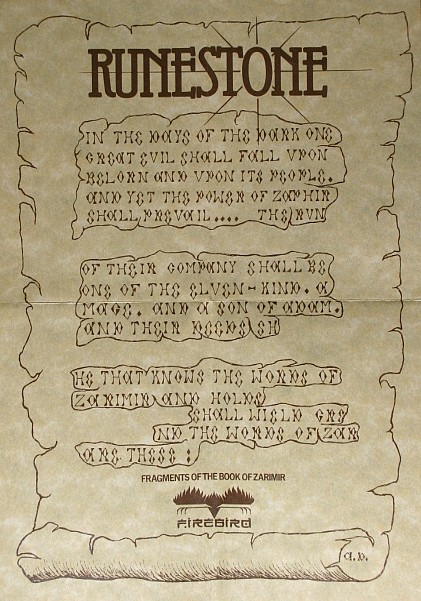 RUNESTONE
IN THE DAYS OF THE DARK ONE
GREAT EVIL SHALL FALL UPON
BELORN AND UPON ITS PEOPLE.
AND YET THE POWER OF ZAPHIR
SHALL PREVAIL.... THE RUN
OF THEIR COMPANY SHALL BE
ONE OF THE ELVEN-KIND. A
MAGE. AND A SON OF ADAM.
AND THEIR DEEDS SH
HE THAT KNOWS THE WORDS OF
ZARIMIR AND HOLDS
SHALL WIELD GRE
ND THE WORDS OF ZAR
ARE THESE :
FRAGMENTS OF THE BOOK OF ZARIMIR
FIREBIRD
A.D.